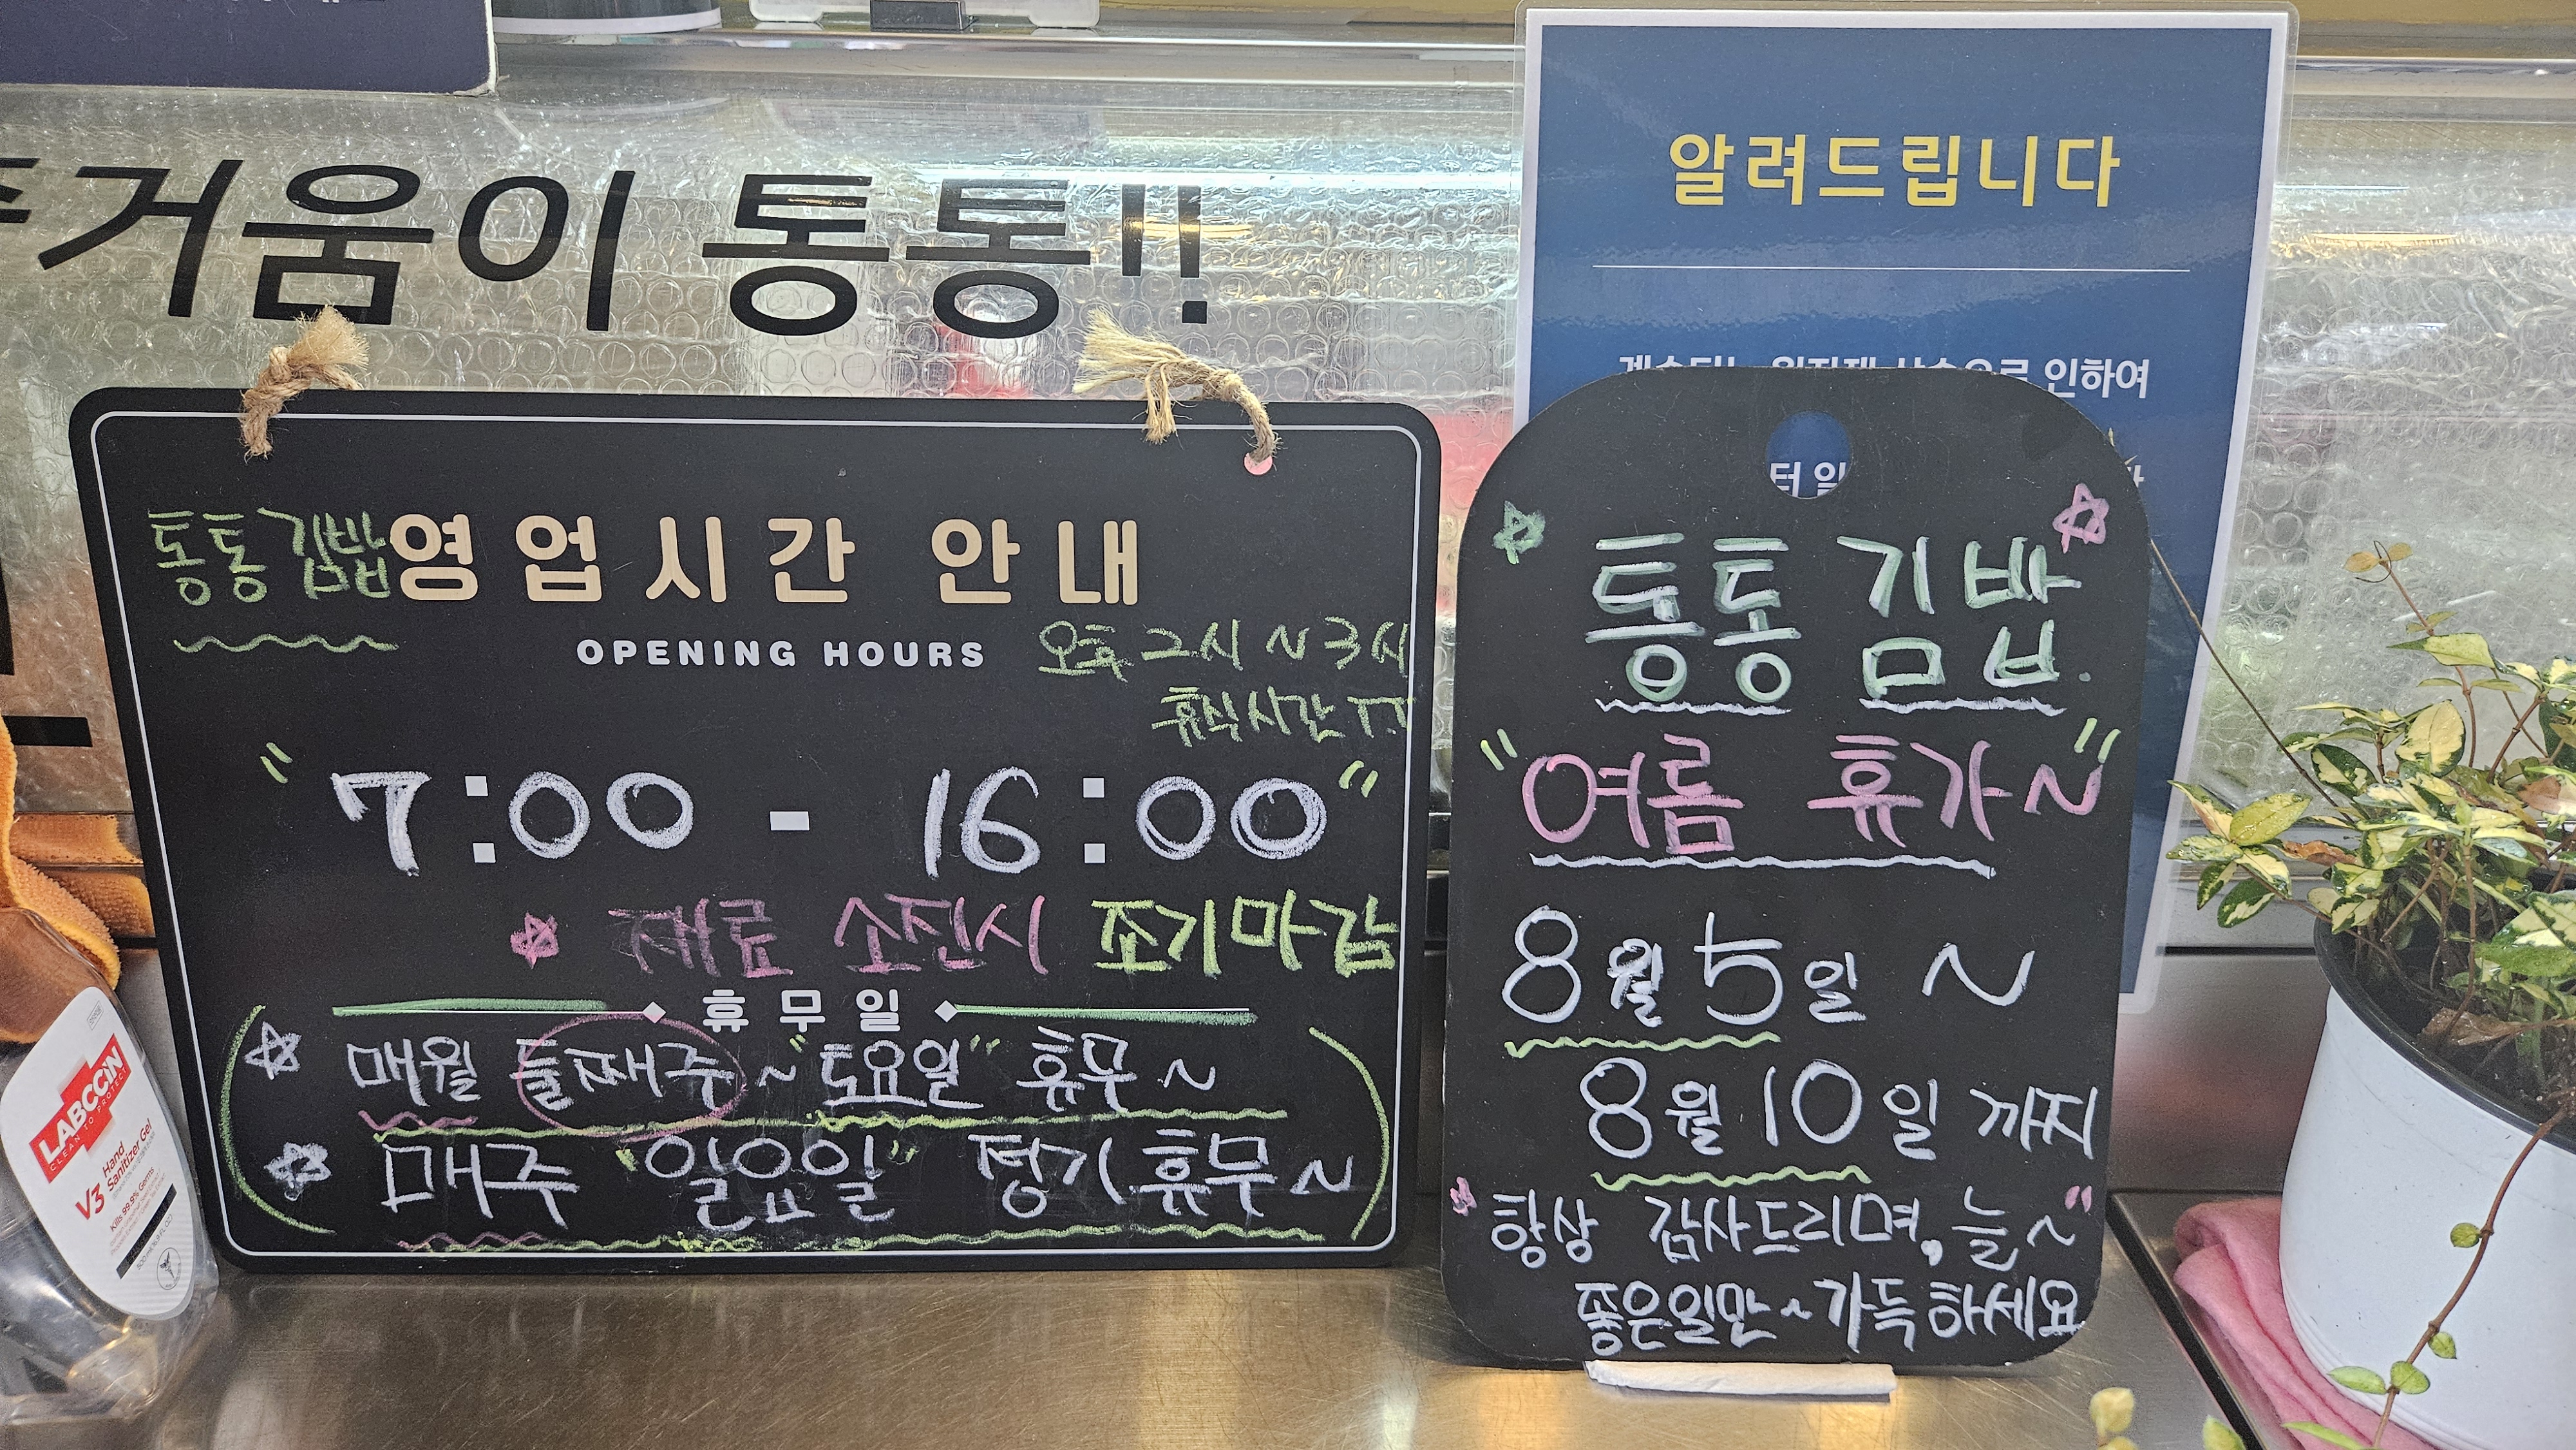 거움이 통통!!
알려드립니다
인하여
터 일
통통김밥 영업시간 안내
OPENING HOURS
오후 2시 ~ 3시
휴식시간 TT
" 7:00 - 16:00 "
재료 소진시 조기마감
휴무일
매월 둘째주 ~ "토요일" 휴무 ~
매주 "일요일" 정기휴무 ~
통통 김밥.
"여름 휴가~"
8월 5일 ~
8월 10일 까지
항상 감사드리며, 늘~"
좋은일만~가득하세요
LABCCiN
CLEAN TO PROTECT
V3 Hand
Sanitizer Gel
Kills 99.9% Germs